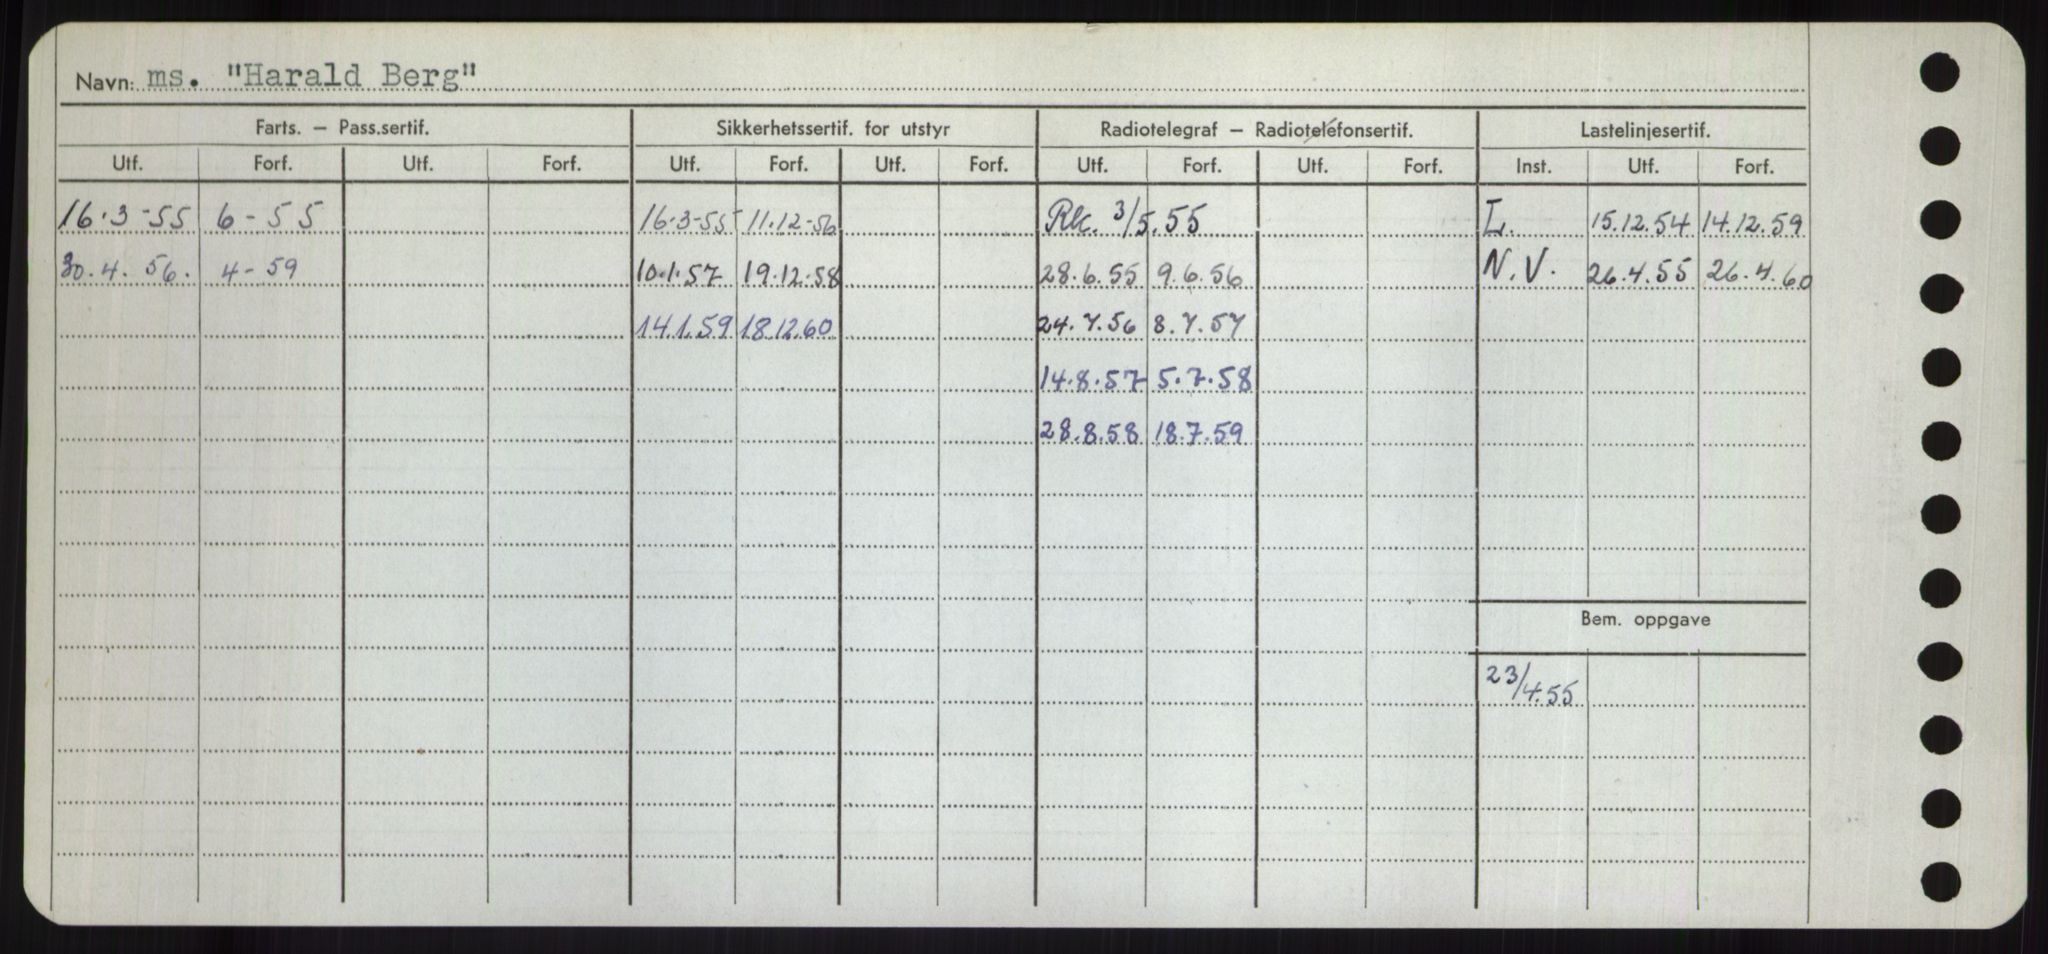 Navn: ms. "Harald Berg"
Farts. – Pass.sertif. Sikkerhetssertif. for utstyr Radiotelegraf – Radiotelefonsertif. Lastelinjesertif.
Utf. Forf. Utf. Forf. Utf. Forf. Utf. Forf. Utf. Forf. Utf. Forf. Inst. Utf. Forf.
16.3-55 6-55 16.3-55 11.12-56 Rk. 3/5.55 L. 15.12.54 14.12.59
30.4.56. 4-59 10.1.57 19.12.58 28.6.55 9.6.56 N.V. 26.4.55 26.4.60
14.1.59 18.12.60 24.7.56 8.7.57
14.8.57 5.7.58
28.8.58 18.7.59
Bem. oppgave
23/4.55